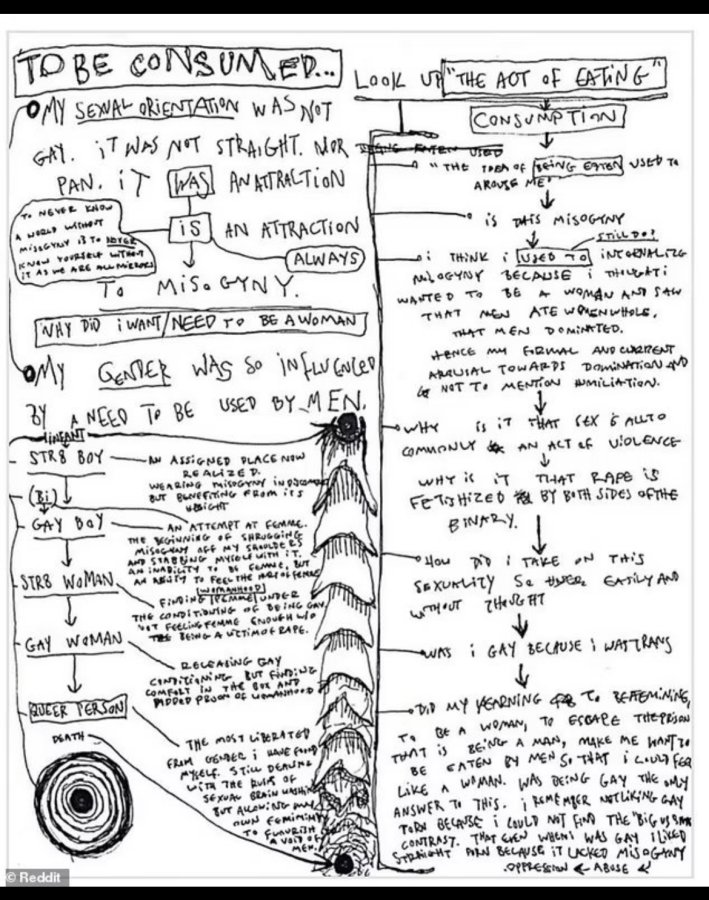 TO BE CONSUMED...
MY SEXUAL ORIENTATION WAS NOT
GAY. IT WAS NOT STRAIGHT. NOR
PAN. IT WAS AN ATTRACTION
IS AN ATTRACTION
ALWAYS
TO NEVER KNOW
A WORLD WITHOUT
MISOGYNY IS TO NEVER
KNOW YOURSELF WITHOUT
IT AS WE ARE ALL MIRRORS
TO MISOGYNY.
WHY DID i WANT/NEED TO BE A WOMAN
MY GENDER WAS SO INFLUENCED
BY A NEED TO BE USED BY MEN.
INFANT
STR8 BOY
AN ASSIGNED PLACE NOW
REALIZED.
WEARING MISOGYNY
BUT BENEFITING FROM ITS
WEIGHT
(Bi)
GAY BOY
AN ATTEMPT AT FEMME.
THE BEGINNING OF SHRUGGING
MISOGYNY OFF MY SHOULDERS
AND STABBING MYSELF WITH IT.
AN INABILITY TO BE FEMME, BUT
AN ABILITY TO FEEL THE OF
STR8 WOMAN
WOMANHOOD
FINDING FEMME UNDER
THE CONDITIONING OF BEING GAY
NOT FEELING FEMME ENOUGH W/O
BEING A VICTIM OF RAPE.
GAY WOMAN
RELEASING GAY
CONDITIONING BUT FINDING
COMFORT IN THE BOX AND
PADDED PRISON OF WOMANHOOD
QUEER PERSON
THE MOST LIBERATED
FROM GENDER i HAVE FOUND
MYSELF. STILL DEALING
WITH THE OF
SEXUAL BRAIN WASHING
BUT ALLOWING MY
OWN FEMININITY
TO FLOURISH
A VOID OF
MEN.
DEATH
LOOK UP "THE ACT OF EATING"
CONSUMPTION
BEING EATEN USED
"THE IDEA OF BEING EATEN USED TO
AROUSE ME"
IS THIS MISOGYNY
STILL DO?
i THINK i USED TO INTERNALIZE
MISOGYNY BECAUSE i THOUGHT i
WANTED TO BE A WOMAN AND SAW
THAT MEN ATE WOMEN WHOLE.
THAT MEN DOMINATED.
HENCE MY FORMAL AND CURRENT
AROUSAL TOWARDS DOMINATION AND
NOT TO MENTION HUMILIATION.
WHY IS IT THAT SEX IS ALL TO
COMMONLY AN ACT OF VIOLENCE
WHY IS IT THAT RAPE IS
FETISHIZED BY BOTH SIDES OF THE
BINARY.
HOW DID i TAKE ON THIS
SEXUALITY SO EASILY AND
WITHOUT THOUGHT
WAS i GAY BECAUSE i WAS TRANS
DID MY YEARNING TO BE FEMININE,
TO BE A WOMAN, TO ESCAPE THE PRISON
THAT IS BEING A MAN, MAKE ME WANT TO
BE EATEN BY MEN SO THAT i COULD FEEL
LIKE A WOMAN. WAS BEING GAY THE ONLY
ANSWER TO THIS. i REMEMBER NOT LIKING GAY
PORN BECAUSE i COULD NOT FIND THE "BIG VS
CONTRAST. THAT EVEN WHEN i WAS GAY i LIKED
STRAIGHT PORN BECAUSE IT LACKED MISOGYNY
OPPRESSION ← ABUSE
© Reddit